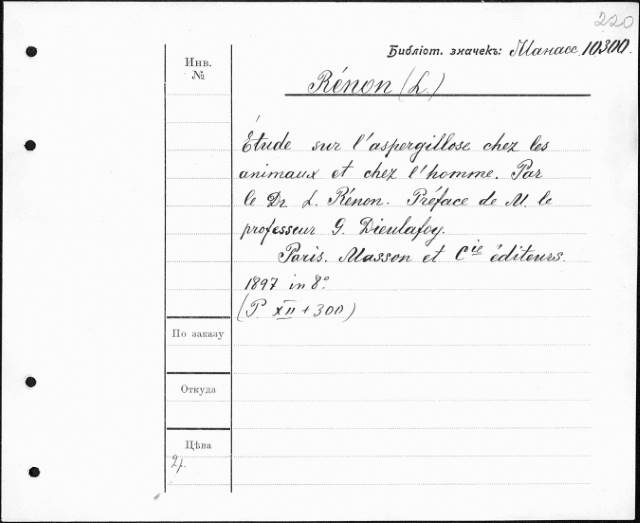 220
Библіот. значекъ: Манасс 10300.
Инв.
№
Rénon (L.)
Étude sur l'aspergillose chez les
animaux et chez l'homme. Par
le Dr L. Rénon. Préface de M. le
professeur G. Dieulafoy.
Paris. Masson et Cie éditeurs.
1897 in 8º.
(P. XII + 300)
По заказу
Откуда
Цѣва